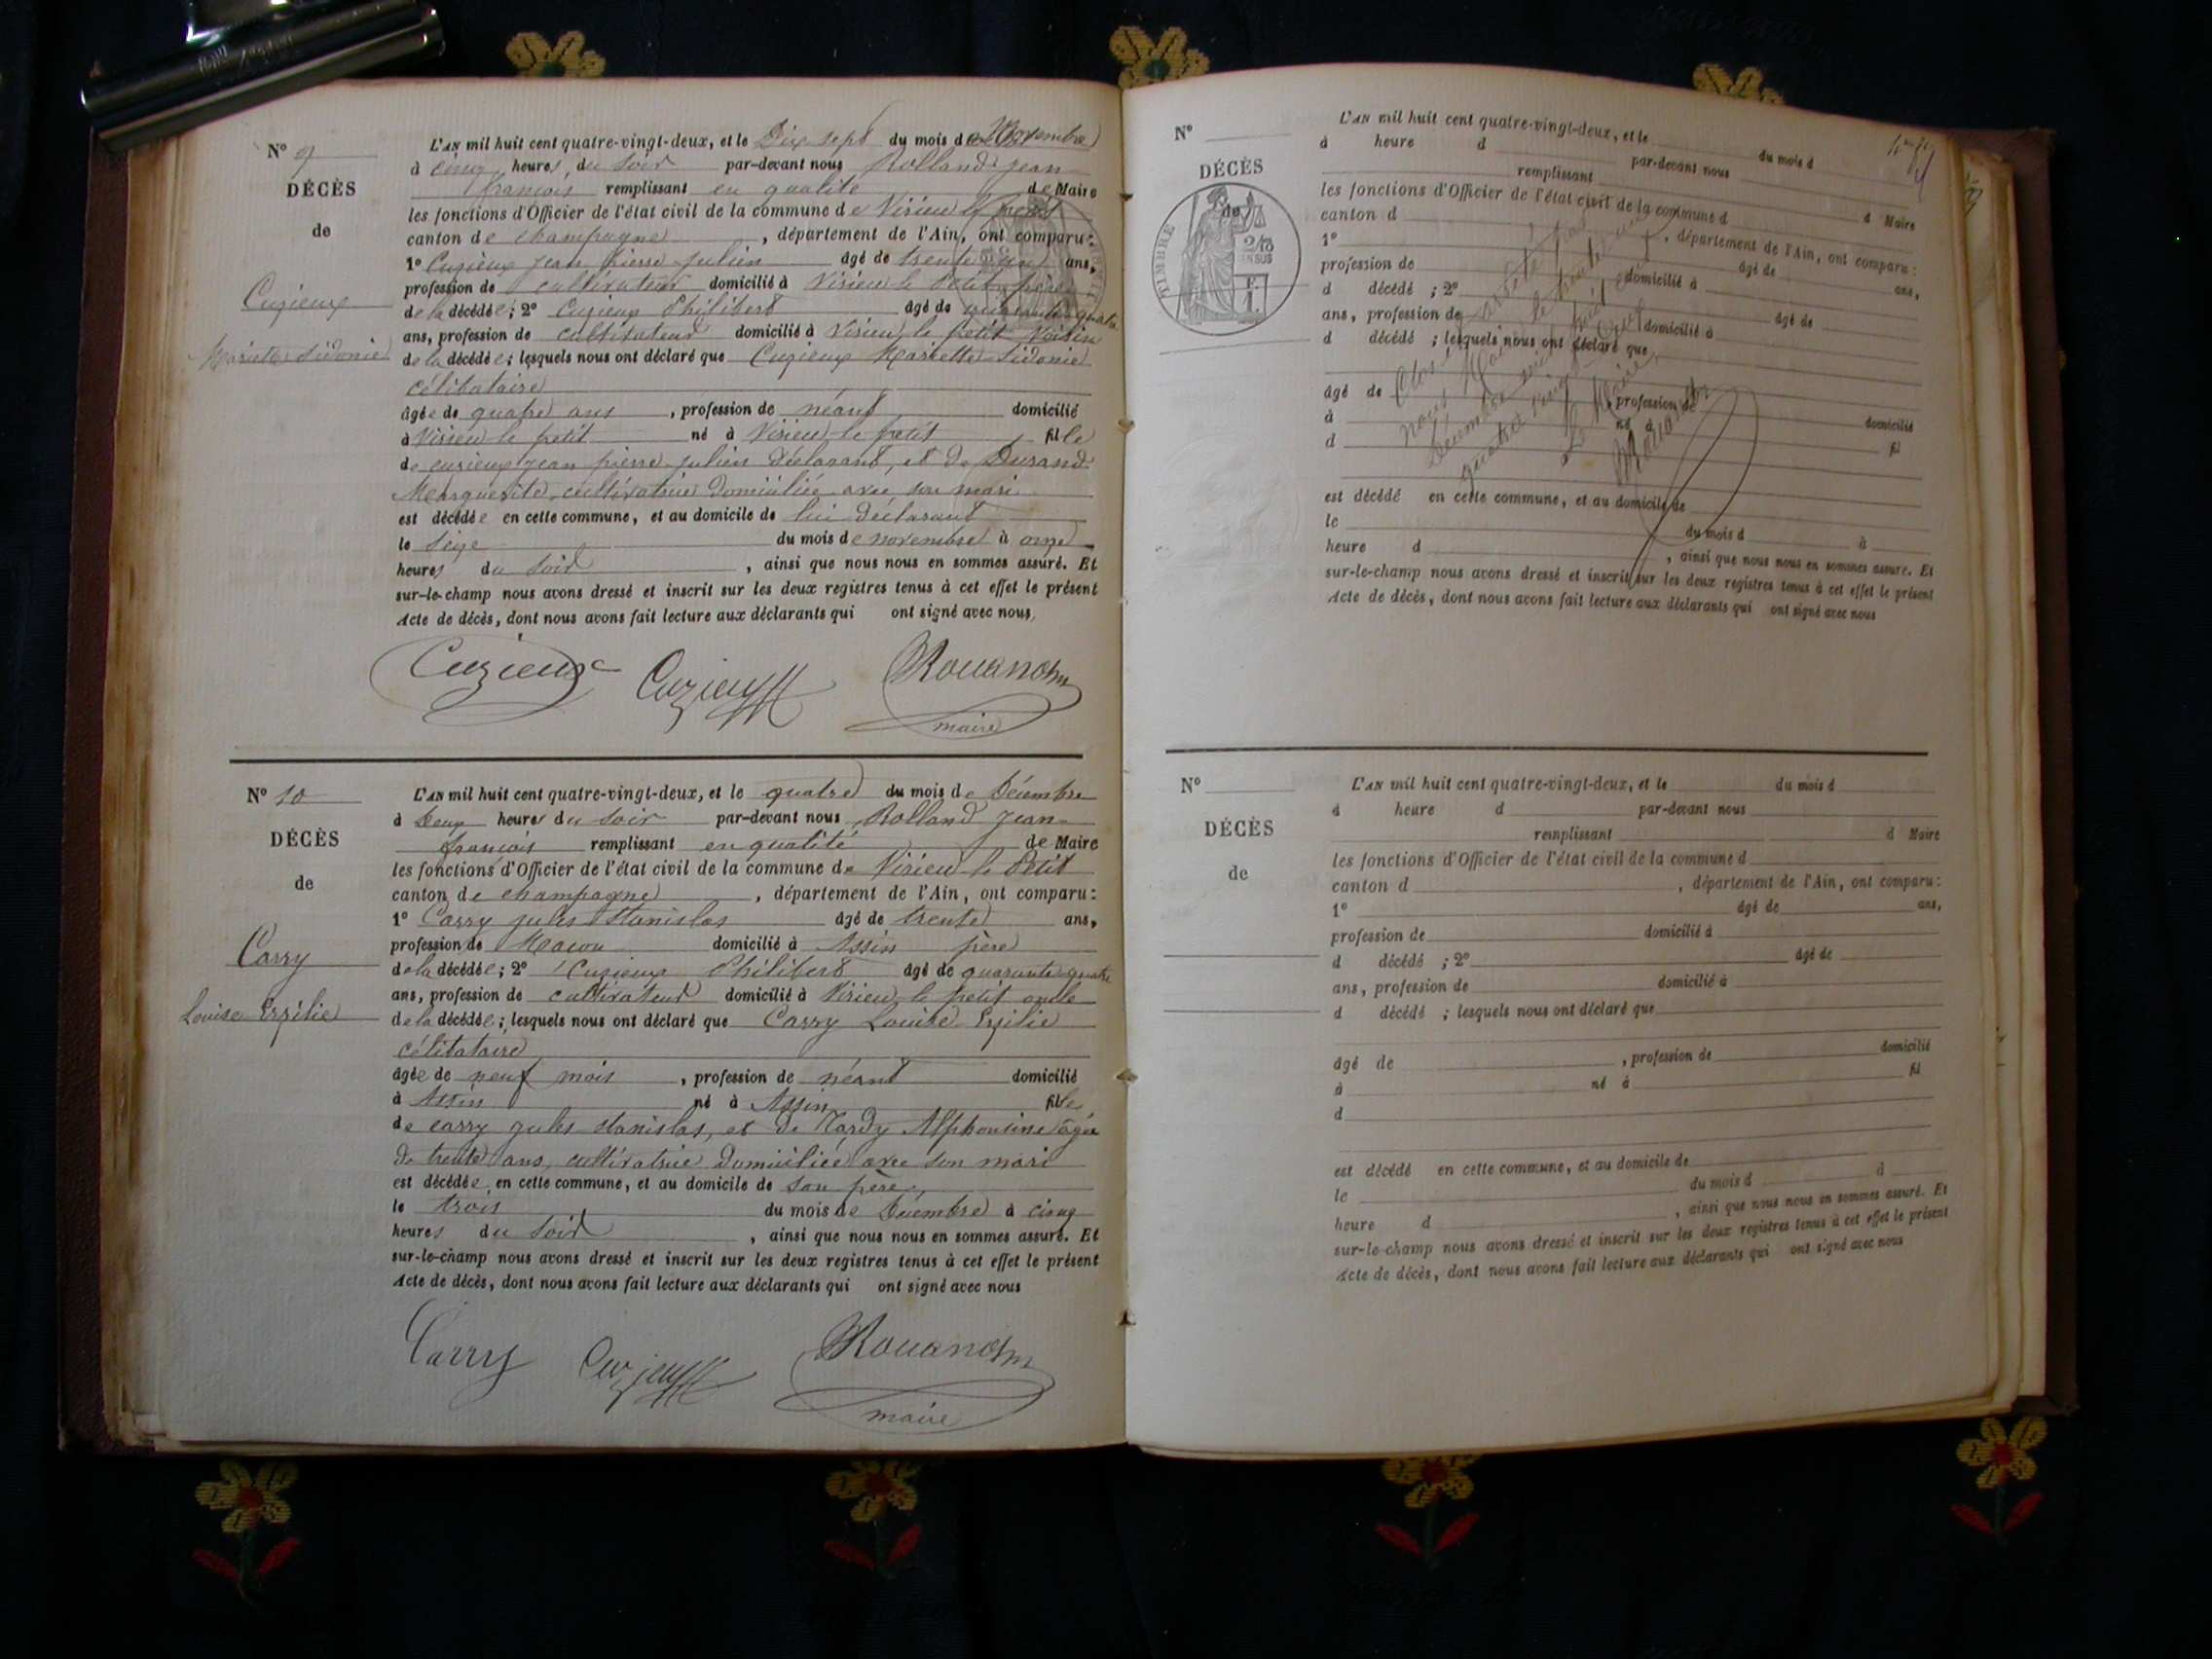 N° 9
DÉCÈS
de
Cuzieux
Mariette Sidonie
L'AN mil huit cent quatre-vingt-deux, et le Dix sept du mois de Novembre
à cinq heures, du soir par-devant nous Rolland jean
françois remplissant en qualité de Maire
les fonctions d'Officier de l'état civil de la commune de Virieu le petit
canton de champagne, département de l'Ain, ont comparu:
1° Cuzieux jean pierre julien âgé de trente ans,
profession de cultivateur domicilié à Virieu le Petit père
de la décédée; 2° Cuzieux Philibert âgé de quarante quatre
ans, profession de cultivateur domicilié à Virieu le petit Voisin
de la décédée; lesquels nous ont déclaré que Cuzieux Mariette Sidonie
célibataire
âgée de quatre ans, profession de néant domicilié
à Virieu le petit né à Virieu le petit fille
de cuzieux jean pierre julien déclarant, et de Durand
Marguerite cultivatrice domiciliée avec son mari
est décédée en cette commune, et au domicile de lui déclarant
le Seize du mois de novembre à onze
heures du soir, ainsi que nous nous en sommes assuré. Et
sur-le-champ nous avons dressé et inscrit sur les deux registres tenus à cet effet le présent
Acte de décès, dont nous avons fait lecture aux déclarants qui ont signé avec nous,
Cuzieux Cuzieux
maire
N° 10
DÉCÈS
de
Carry
Louise Erzilie
L'AN mil huit cent quatre-vingt-deux, et le quatre du mois de Décembre
à Deux heures du soir par-devant nous Rolland jean
françois remplissant en qualité de Maire
les fonctions d'Officier de l'état civil de la commune de Virieu le Petit
canton de champagne, département de l'Ain, ont comparu:
1° Carry jules Stanislas âgé de trente ans,
profession de Macon domicilié à Assin père
de la décédée; 2° Cuzieux Philibert âgé de quarante quatre
ans, profession de cultivateur domicilié à Virieu le petit oncle
de la décédée; lesquels nous ont déclaré que Carry Louise Erzilie
célibataire
âgée de neuf mois, profession de néant domicilié
à Assin né à Assin fille
de carry jules stanislas, et de Tardy Alphonsine âgée
de trente ans, cultivatrice domiciliée avec son mari
est décédée en cette commune, et au domicile de son père,
le trois du mois de Décembre à cinq
heures du soir, ainsi que nous nous en sommes assuré. Et
sur-le-champ nous avons dressé et inscrit sur les deux registres tenus à cet effet le présent
Acte de décès, dont nous avons fait lecture aux déclarants qui ont signé avec nous
Carry Cuzieux
maire
N°
DÉCÈS
de
TIMBRE
L'AN mil huit cent quatre-vingt-deux, et le du mois d
à heure d par-devant nous
remplissant d Maire
les fonctions d'Officier de l'état civil de la commune d
canton d, département de l'Ain, ont comparu:
1° âgé de ans,
profession de domicilié à
d décédé; 2° âgé de
ans, profession de domicilié à
d décédé; lesquels nous ont déclaré que
âgé de, profession de domicilié
à né à fil
d
Clos arrêté par
nous Maire le trente un
Décembre mil huit cent
quatre vingt deux
Le Maire
est décédé en cette commune, et au domicile de
le du mois d à
heure d, ainsi que nous nous en sommes assuré. Et
sur-le-champ nous avons dressé et inscrit sur les deux registres tenus à cet effet le présent
Acte de décès, dont nous avons fait lecture aux déclarants qui ont signé avec nous
N°
DÉCÈS
de
L'AN mil huit cent quatre-vingt-deux, et le du mois d
à heure d par-devant nous
remplissant d Maire
les fonctions d'Officier de l'état civil de la commune d
canton d, département de l'Ain, ont comparu:
1° âgé de ans,
profession de domicilié à
d décédé; 2° âgé de
ans, profession de domicilié à
d décédé; lesquels nous ont déclaré que
âgé de, profession de domicilié
à né à fil
d
est décédé en cette commune, et au domicile de
le du mois d à
heure d, ainsi que nous nous en sommes assuré. Et
sur-le-champ nous avons dressé et inscrit sur les deux registres tenus à cet effet le présent
Acte de décès, dont nous avons fait lecture aux déclarants qui ont signé avec nous